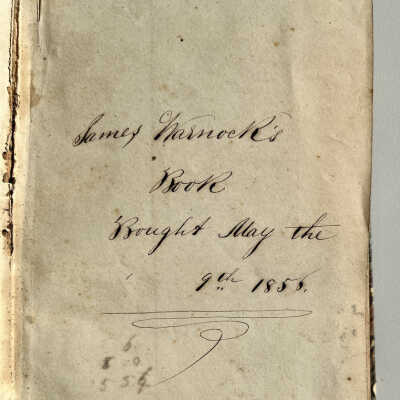 James Warnock's
Book
Bought May the
9th 1856.
6
8 0
5 56